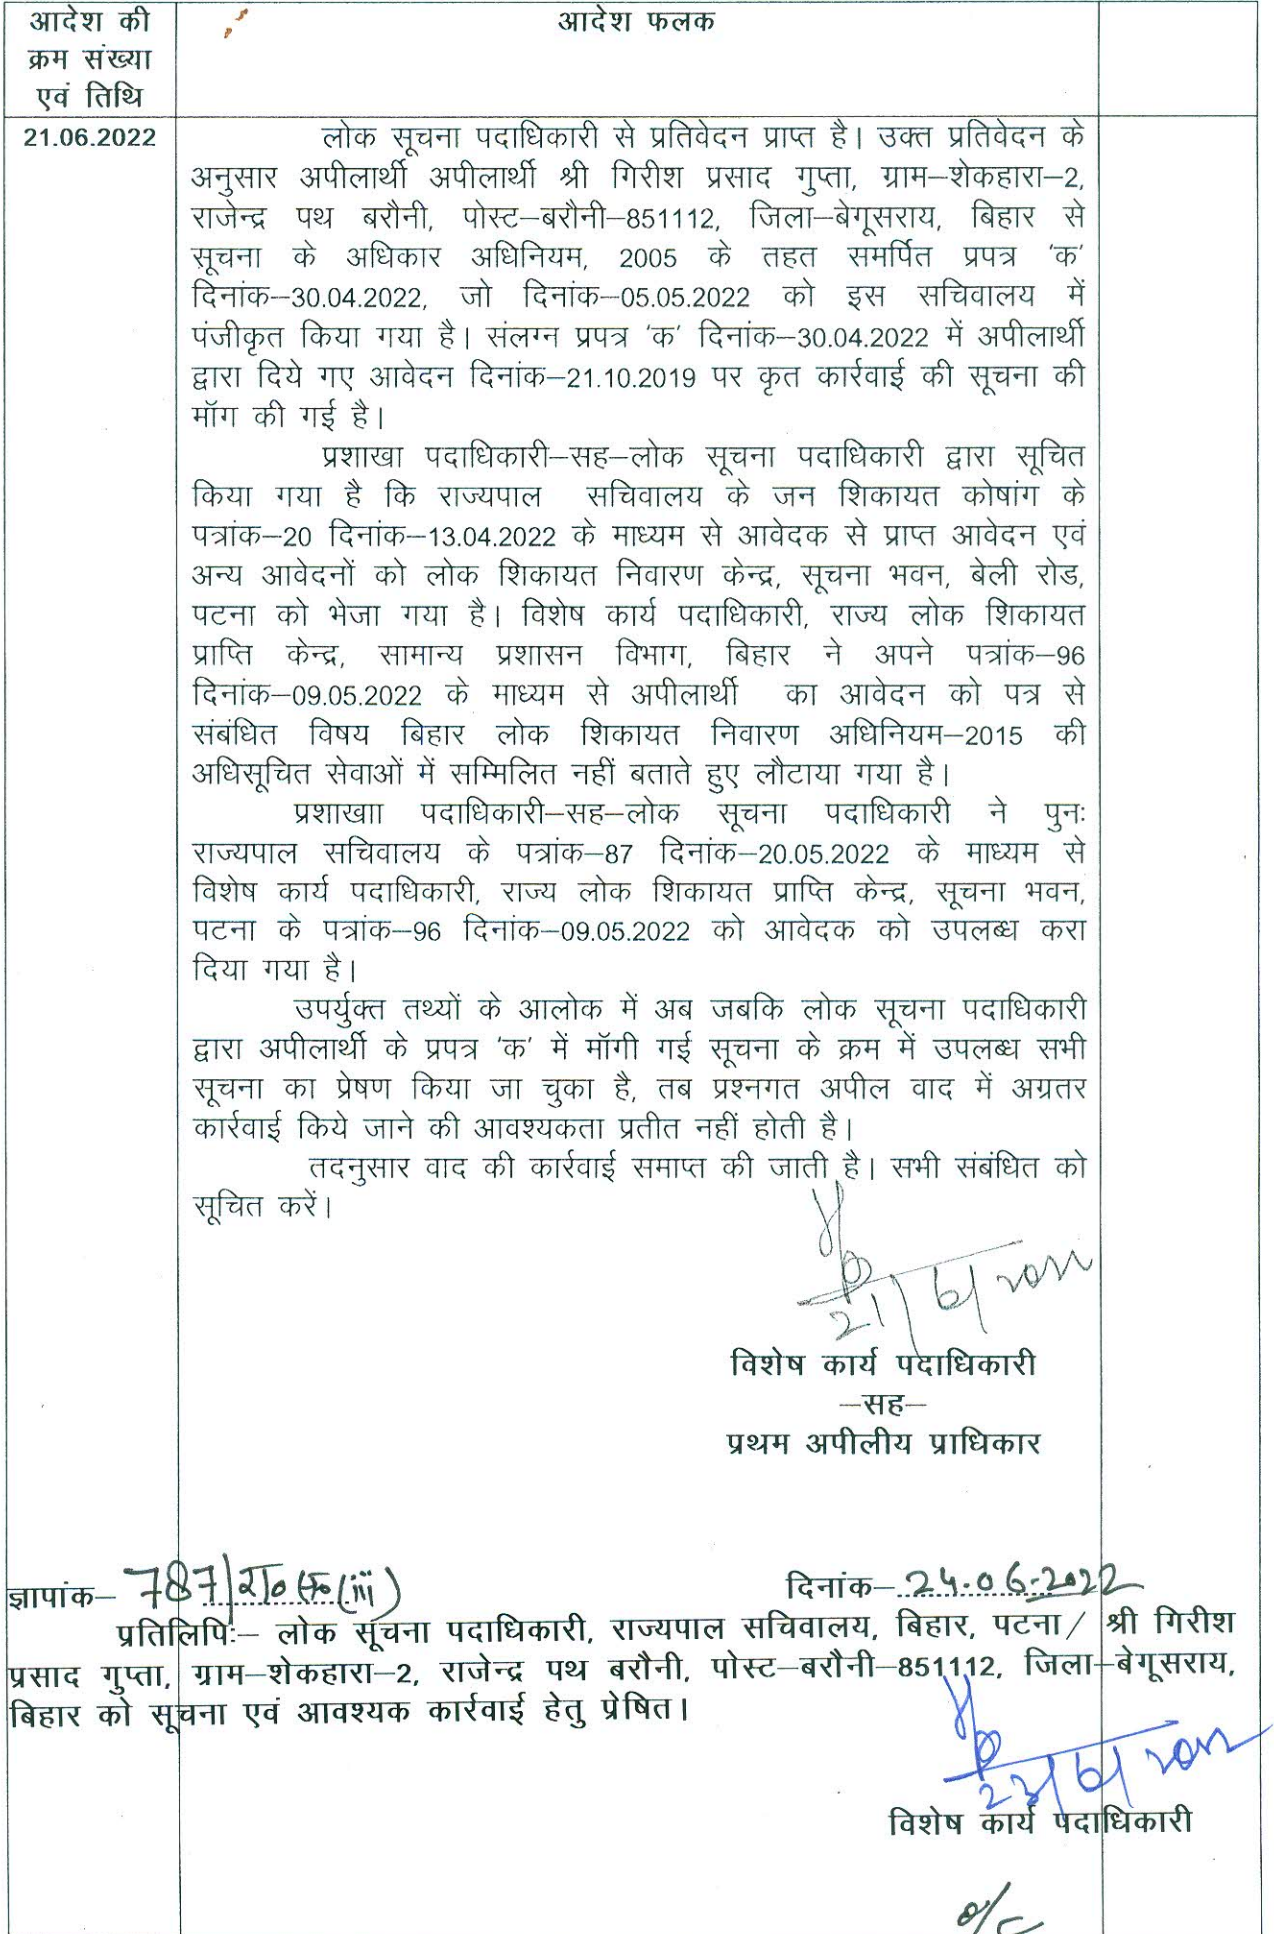 आदेश की
क्रम संख्या
एवं तिथि
आदेश फलक
21.06.2022
लोक सूचना पदाधिकारी से प्रतिवेदन प्राप्त है। उक्त प्रतिवेदन के
अनुसार अपीलार्थी अपीलार्थी श्री गिरीश प्रसाद गुप्ता, ग्राम–शेकहारा–2,
राजेन्द्र पथ बरौनी, पोस्ट–बरौनी–851112, जिला–बेगूसराय, बिहार से
सूचना के अधिकार अधिनियम, 2005 के तहत समर्पित प्रपत्र 'क'
दिनांक–30.04.2022, जो दिनांक–05.05.2022 को इस सचिवालय में
पंजीकृत किया गया है। संलग्न प्रपत्र 'क' दिनांक–30.04.2022 में अपीलार्थी
द्वारा दिये गए आवेदन दिनांक–21.10.2019 पर कृत कार्रवाई की सूचना की
मॉग की गई है।
प्रशाखा पदाधिकारी–सह–लोक सूचना पदाधिकारी द्वारा सूचित
किया गया है कि राज्यपाल सचिवालय के जन शिकायत कोषांग के
पत्रांक–20 दिनांक–13.04.2022 के माध्यम से आवेदक से प्राप्त आवेदन एवं
अन्य आवेदनों को लोक शिकायत निवारण केन्द्र, सूचना भवन, बेली रोड,
पटना को भेजा गया है। विशेष कार्य पदाधिकारी, राज्य लोक शिकायत
प्राप्ति केन्द्र, सामान्य प्रशासन विभाग, बिहार ने अपने पत्रांक–96
दिनांक–09.05.2022 के माध्यम से अपीलार्थी का आवेदन को पत्र से
संबंधित विषय बिहार लोक शिकायत निवारण अधिनियम–2015 की
अधिसूचित सेवाओं में सम्मिलित नहीं बताते हुए लौटाया गया है।
प्रशाखाा पदाधिकारी–सह–लोक सूचना पदाधिकारी ने पुनः
राज्यपाल सचिवालय के पत्रांक–87 दिनांक–20.05.2022 के माध्यम से
विशेष कार्य पदाधिकारी, राज्य लोक शिकायत प्राप्ति केन्द्र, सूचना भवन,
पटना के पत्रांक–96 दिनांक–09.05.2022 को आवेदक को उपलब्ध करा
दिया गया है।
उपर्युक्त तथ्यों के आलोक में अब जबकि लोक सूचना पदाधिकारी
द्वारा अपीलार्थी के प्रपत्र 'क' में मॉगी गई सूचना के क्रम में उपलब्ध सभी
सूचना का प्रेषण किया जा चुका है, तब प्रश्नगत अपील वाद में अग्रतर
कार्रवाई किये जाने की आवश्यकता प्रतीत नहीं होती है।
तदनुसार वाद की कार्रवाई समाप्त की जाती है। सभी संबंधित को
सूचित करें।
विशेष कार्य पदाधिकारी
–सह–
प्रथम अपीलीय प्राधिकार
ज्ञापांक– 787/रा०स०(iii) दिनांक–24.06.2022
प्रतिलिपिः– लोक सूचना पदाधिकारी, राज्यपाल सचिवालय, बिहार, पटना/ श्री गिरीश
प्रसाद गुप्ता, ग्राम–शेकहारा–2, राजेन्द्र पथ बरौनी, पोस्ट–बरौनी–851112, जिला–बेगूसराय,
बिहार को सूचना एवं आवश्यक कार्रवाई हेतु प्रेषित।
विशेष कार्य पदाधिकारी